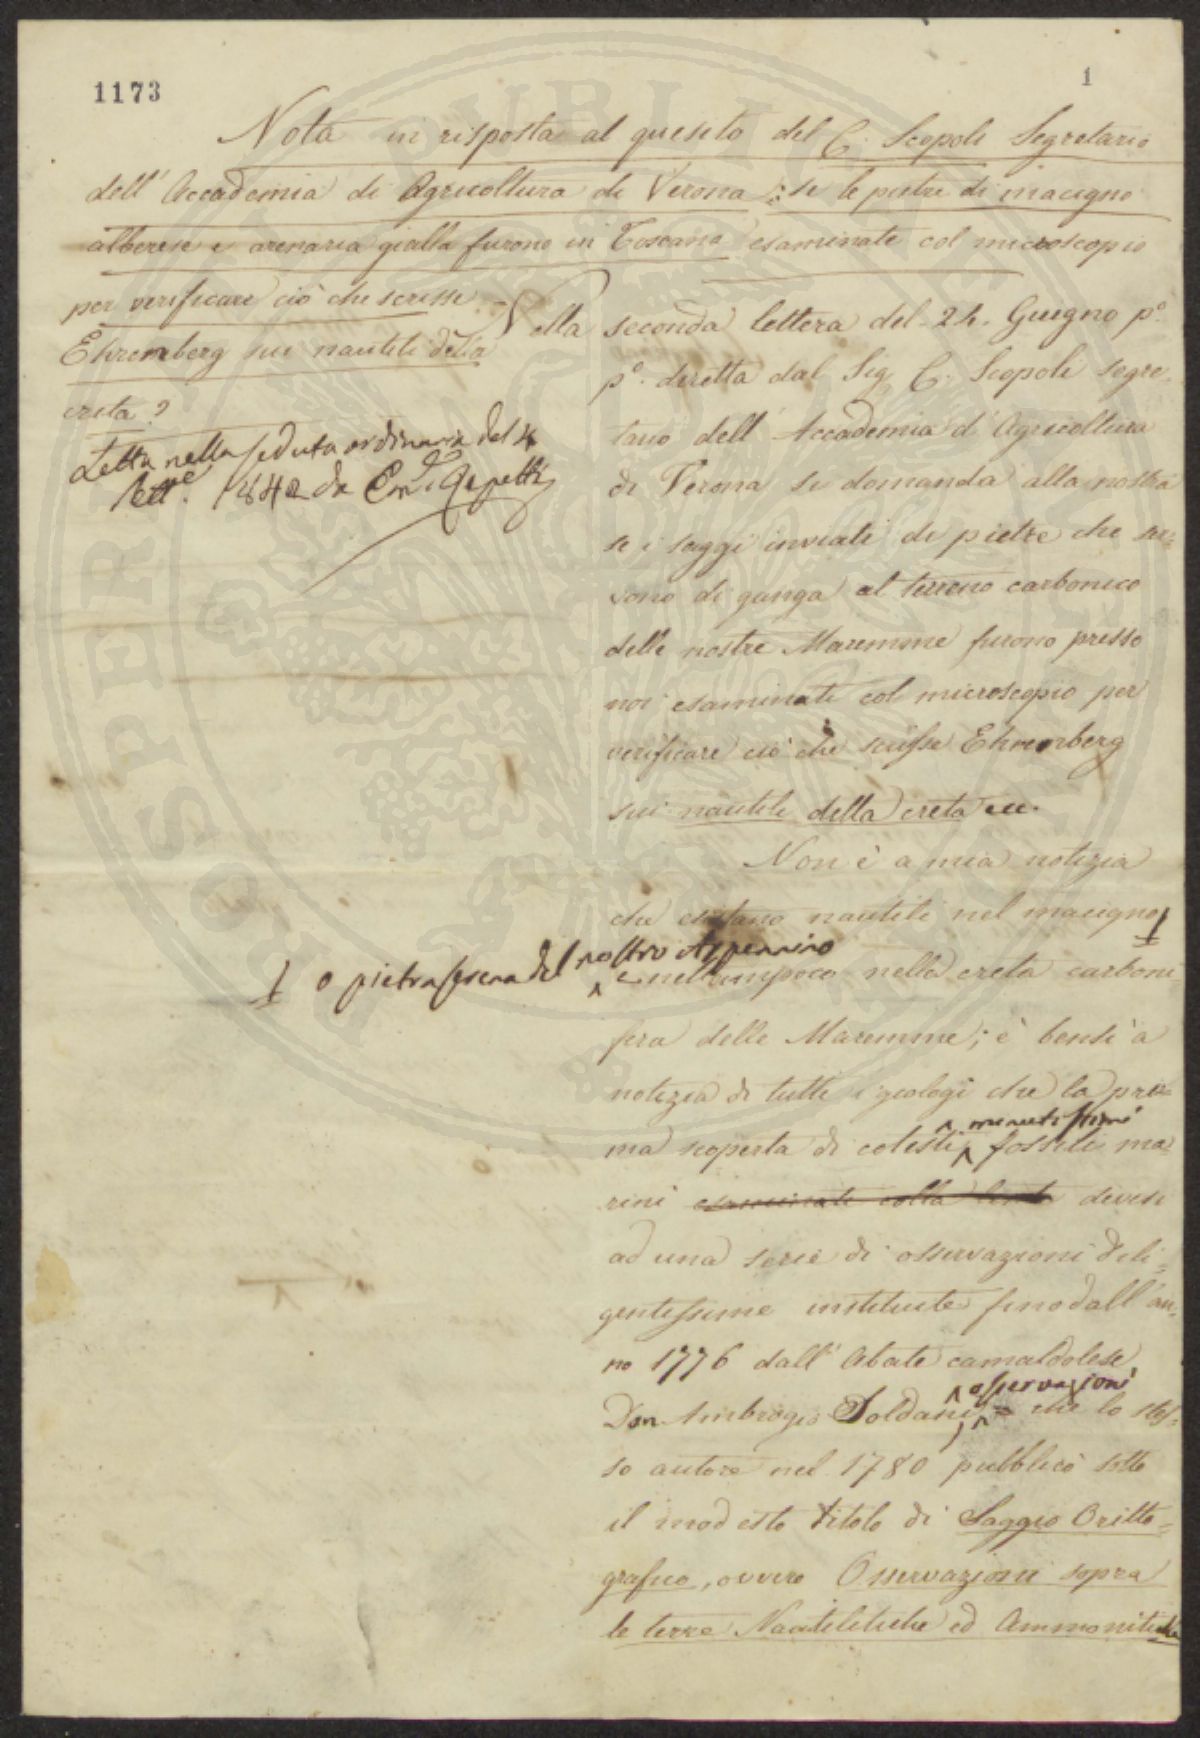 1173
1
Nota in risposta al quesito del C. Scopoli Segretario
dell' Accademia di Agricoltura di Verona: se le pietre di macigno
alberese e arenaria gialla furono in Toscana esaminate col microscopio
per verificare ciò che scrisse
Ehremberg sui nautili della
creta?
Letta nella seduta ordinaria del 4
Sett.e 1842 da Em. Repetti
Nella seconda lettera del 24. Giugno p.o
p.o diretta dal Sig. C. Scopoli segre-
tario dell' Accademia d' Agricoltura
di Verona si domanda alla nostra
se i saggi inviati di pietre che ser-
vono di ganga al terreno carbonico
delle nostre Maremme furono presso
noi esaminati col microscopio per
verificare ciò che scrisse Ehremberg
sui nautili della creta ec.
Non è a mia notizia
che esistano nautili nel macigno
o pietra serena del nostro Appennino
e nemmpoco nella creta carboni-
fera delle Maremme; è bensì a
notizia di tutti i geologi che la pri-
ma scoperta di cotesti minutissimi fossili ma-
rini esaminati colla lente devesi
ad una serie di osservazioni dili-
gentissime instituite fino dall' an-
no 1776 dall' Abate camaldolese
Don Ambrogio Soldani, osservazioni che lo stes-
so autore nel 1780 pubblicò sotto
il modesto titolo di Saggio Oritto-
grafico, ovvero Osservazioni sopra
le terre Nautilitiche ed Ammonitiche
PROSPER
PUBLIC